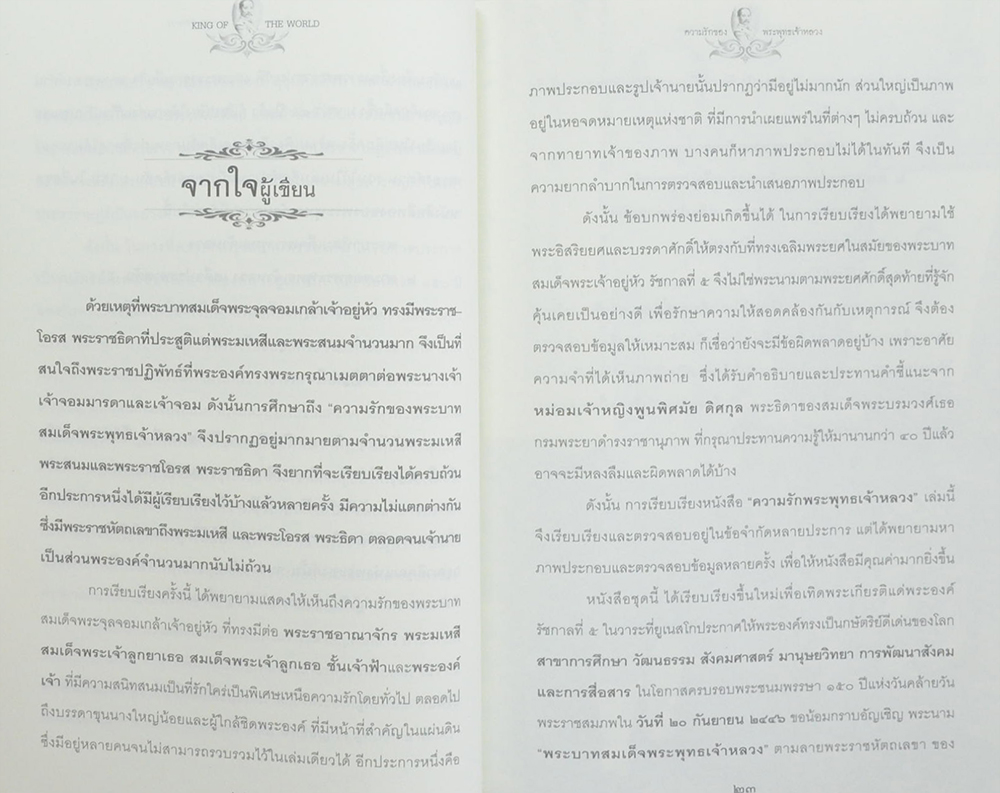 KING OF THE WORLD
จากใจผู้เขียน
ด้วยเหตุที่พระบาทสมเด็จพระจุลจอมเกล้าเจ้าอยู่หัว ทรงมีพระราช-
โอรส พระราชธิดาที่ประสูติแต่พระมเหสีและพระสนมจำนวนมาก จึงเป็นที่
สนใจถึงพระราชปฏิพัทธ์ที่พระองค์ทรงพระกรุณาเมตตาต่อพระนางเจ้า
เจ้าจอมมารดาและเจ้าจอม ดังนั้นการศึกษาถึง “ความรักของพระบาท
สมเด็จพระพุทธเจ้าหลวง” จึงปรากฏอยู่มากมายตามจำนวนพระมเหสี
พระสนมและพระราชโอรส พระราชธิดา จึงยากที่จะเรียบเรียงได้ครบถ้วน
อีกประการหนึ่งได้มีผู้เรียบเรียงไว้บ้างแล้วหลายครั้ง มีความไม่แตกต่างกัน
ซึ่งมีพระราชหัตถเลขาถึงพระมเหสี และพระโอรส พระธิดา ตลอดจนเจ้านาย
เป็นส่วนพระองค์จำนวนมากนับไม่ถ้วน
การเรียบเรียงครั้งนี้ ได้พยายามแสดงให้เห็นถึงความรักของพระบาท
สมเด็จพระจุลจอมเกล้าเจ้าอยู่หัว ที่ทรงมีต่อ พระราชอาณาจักร พระมเหสี
สมเด็จพระเจ้าลูกยาเธอ สมเด็จพระเจ้าลูกเธอ ชั้นเจ้าฟ้าและพระองค์
เจ้า ที่มีความสนิทสนมเป็นที่รักใคร่เป็นพิเศษเหนือความรักโดยทั่วไป ตลอดไป
ถึงบรรดาขุนนางใหญ่น้อยและผู้ใกล้ชิดพระองค์ ที่มีหน้าที่สำคัญในแผ่นดิน
ซึ่งมีอยู่หลายคนจนไม่สามารถรวบรวมไว้ในเล่มเดียวได้ อีกประการหนึ่งคือ
ความรักของ พระพุทธเจ้าหลวง
ภาพประกอบและรูปเจ้านายนั้นปรากฏว่ามีอยู่ไม่มากนัก ส่วนใหญ่เป็นภาพ
อยู่ในหอจดหมายเหตุแห่งชาติ ที่มีการนำเผยแพร่ในที่ต่างๆ ไม่ครบถ้วน และ
จากทายาทเจ้าของภาพ บางคนก็หาภาพประกอบไม่ได้ในทันที จึงเป็น
ความยากลำบากในการตรวจสอบและนำเสนอภาพประกอบ
ดังนั้น ข้อบกพร่องย่อมเกิดขึ้นได้ ในการเรียบเรียงได้พยายามใช้
พระอิสริยยศและบรรดาศักดิ์ให้ตรงกับที่ทรงเฉลิมพระยศในสมัยของพระบาท
สมเด็จพระเจ้าอยู่หัว รัชกาลที่ ๕ จึงไม่ใช่พระนามตามพระยศศักดิ์สุดท้ายที่รู้จัก
คุ้นเคยเป็นอย่างดี เพื่อรักษาความให้สอดคล้องกันกับเหตุการณ์ จึงต้อง
ตรวจสอบข้อมูลให้เหมาะสม ก็เชื่อว่ายังจะมีข้อผิดพลาดอยู่บ้าง เพราะอาศัย
ความจำที่ได้เห็นภาพถ่าย ซึ่งได้รับคำอธิบายและประทานคำชี้แนะจาก
หม่อมเจ้าหญิงพูนพิศมัย ดิศกุล พระธิดาของสมเด็จพระบรมวงศ์เธอ
กรมพระยาดำรงราชานุภาพ ที่กรุณาประทานความรู้ให้มานานกว่า ๔๐ ปีแล้ว
อาจจะมีหลงลืมและผิดพลาดได้บ้าง
ดังนั้น การเรียบเรียงหนังสือ “ความรักพระพุทธเจ้าหลวง” เล่มนี้
จึงเรียบเรียงและตรวจสอบอยู่ในข้อจำกัดหลายประการ แต่ได้พยายามหา
ภาพประกอบและตรวจสอบข้อมูลหลายครั้ง เพื่อให้หนังสือมีคุณค่ามากยิ่งขึ้น
หนังสือชุดนี้ ได้เรียบเรียงขึ้นใหม่เพื่อเทิดพระเกียรติแด่พระองค์
รัชกาลที่ ๕ ในวาระที่ยูเนสโกประกาศให้พระองค์ทรงเป็นกษัตริย์ดีเด่นของโลก
สาขาการศึกษา วัฒนธรรม สังคมศาสตร์ มานุษยวิทยา การพัฒนาสังคม
และการสื่อสาร ในโอกาสครบรอบพระชนมพรรษา ๑๕๐ ปีแห่งวันคล้ายวัน
พระราชสมภพใน วันที่ ๒๐ กันยายน ๒๔๔๖ ขอน้อมกราบอัญเชิญ พระนาม
“พระบาทสมเด็จพระพุทธเจ้าหลวง” ตามลายพระราชหัตถเลขา ของ
๒๓